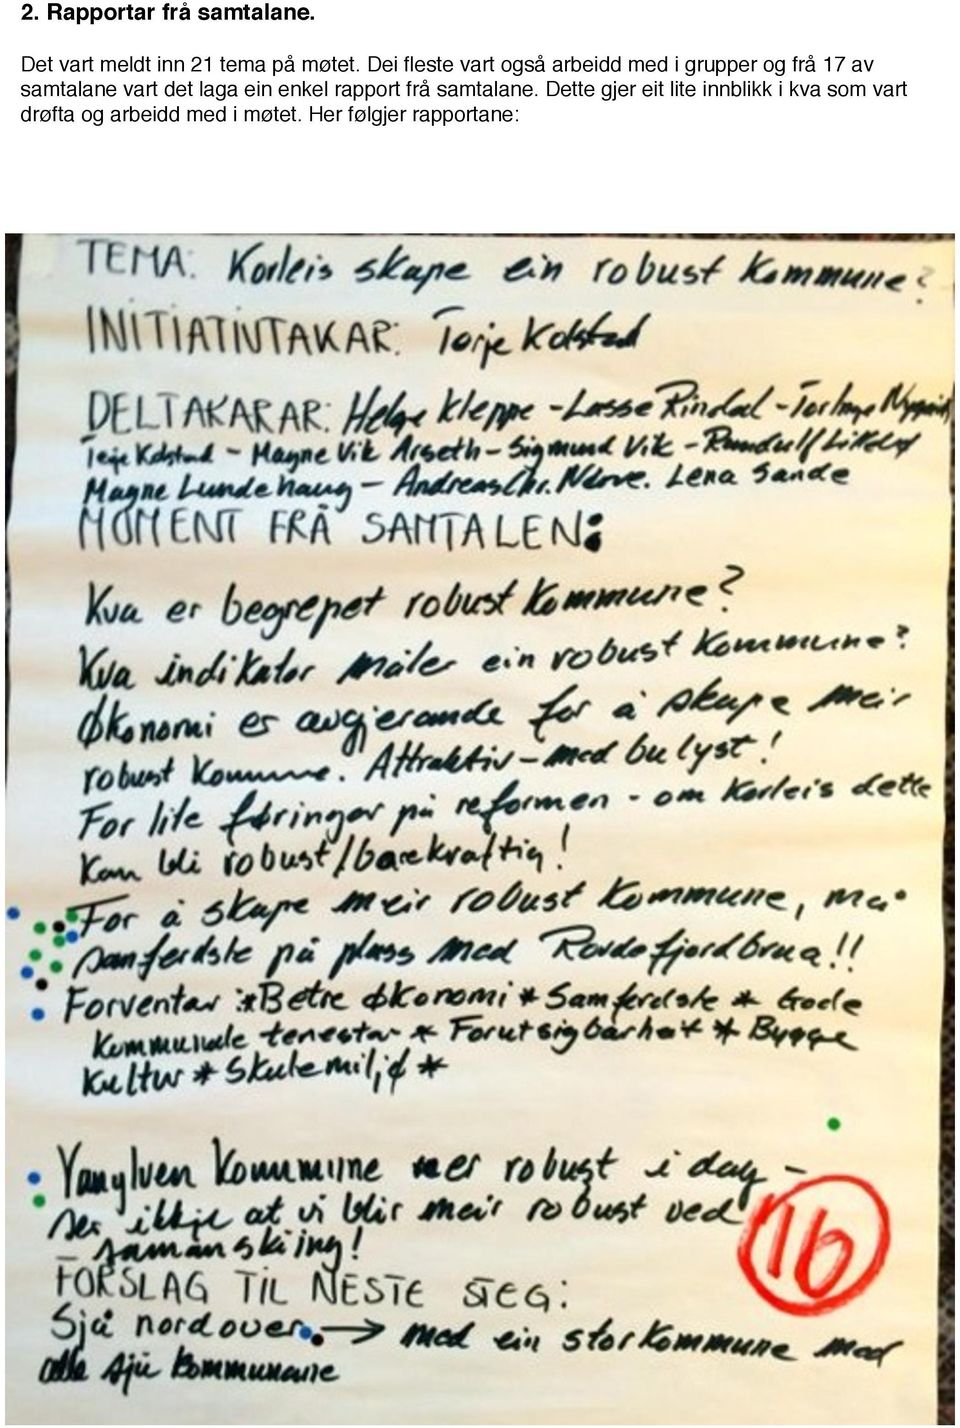 2. Rapportar frå samtalane.
Det vart meldt inn 21 tema på møtet. Dei fleste vart også arbeidd med i grupper og frå 17 av
samtalane vart det laga ein enkel rapport frå samtalane. Dette gjer eit lite innblikk i kva som vart
drøfta og arbeidd med i møtet. Her følgjer rapportane:
TEMA: Korleis skape ein robust kommune?
INITIATIVTAKAR: Torje Kolstad
DELTAKARAR: Helge Kleppe - Lasse Rindal - Tor Inge
Terje Kolstad - Magne Vik Årseth - Sigmund Vik -
Magne Lundehaug - Andreas Chr. Nørve. Lena Sande
MOMENT FRÅ SAMTALEN:
Kva er begrepet robust kommune?
Kva indikator måler ein robust kommune?
Økonomi er avgjerande for å skape meir
robust kommune. Attraktiv - med bulyst!
For lite føringar på reformen - om korleis dette
kan bli robust/bærekraftig!
For å skape meir robust kommune, må
samferdsle på plass med Rovdefjordbrua!!
Forventar: * Betre økonomi * Samferdsle * Gode
kommunale tenestar * Forutsigbarheit * Bygge
Kultur * Skulemiljø *
Vanylven kommune er robust i dag -
ser ikkje at vi blir meir robust ved
- samanslåing!
16
FORSLAG TIL NESTE STEG:
Sjå nordover. → med ein storkommune med
alle sju kommunane